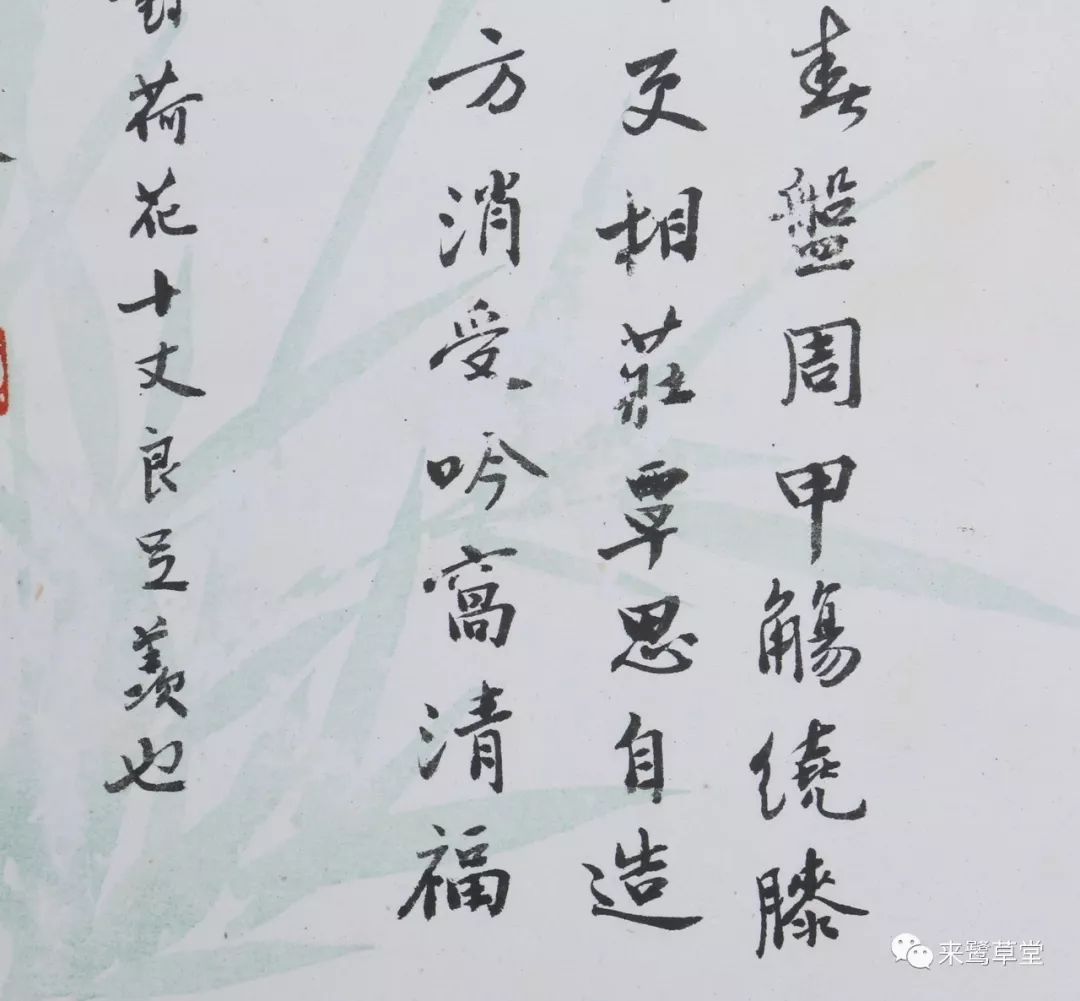 春盤周甲觴繞膝
更相莊覃思自造
方消受吟窩清福
對荷花十丈良足羨也
来鹭草堂